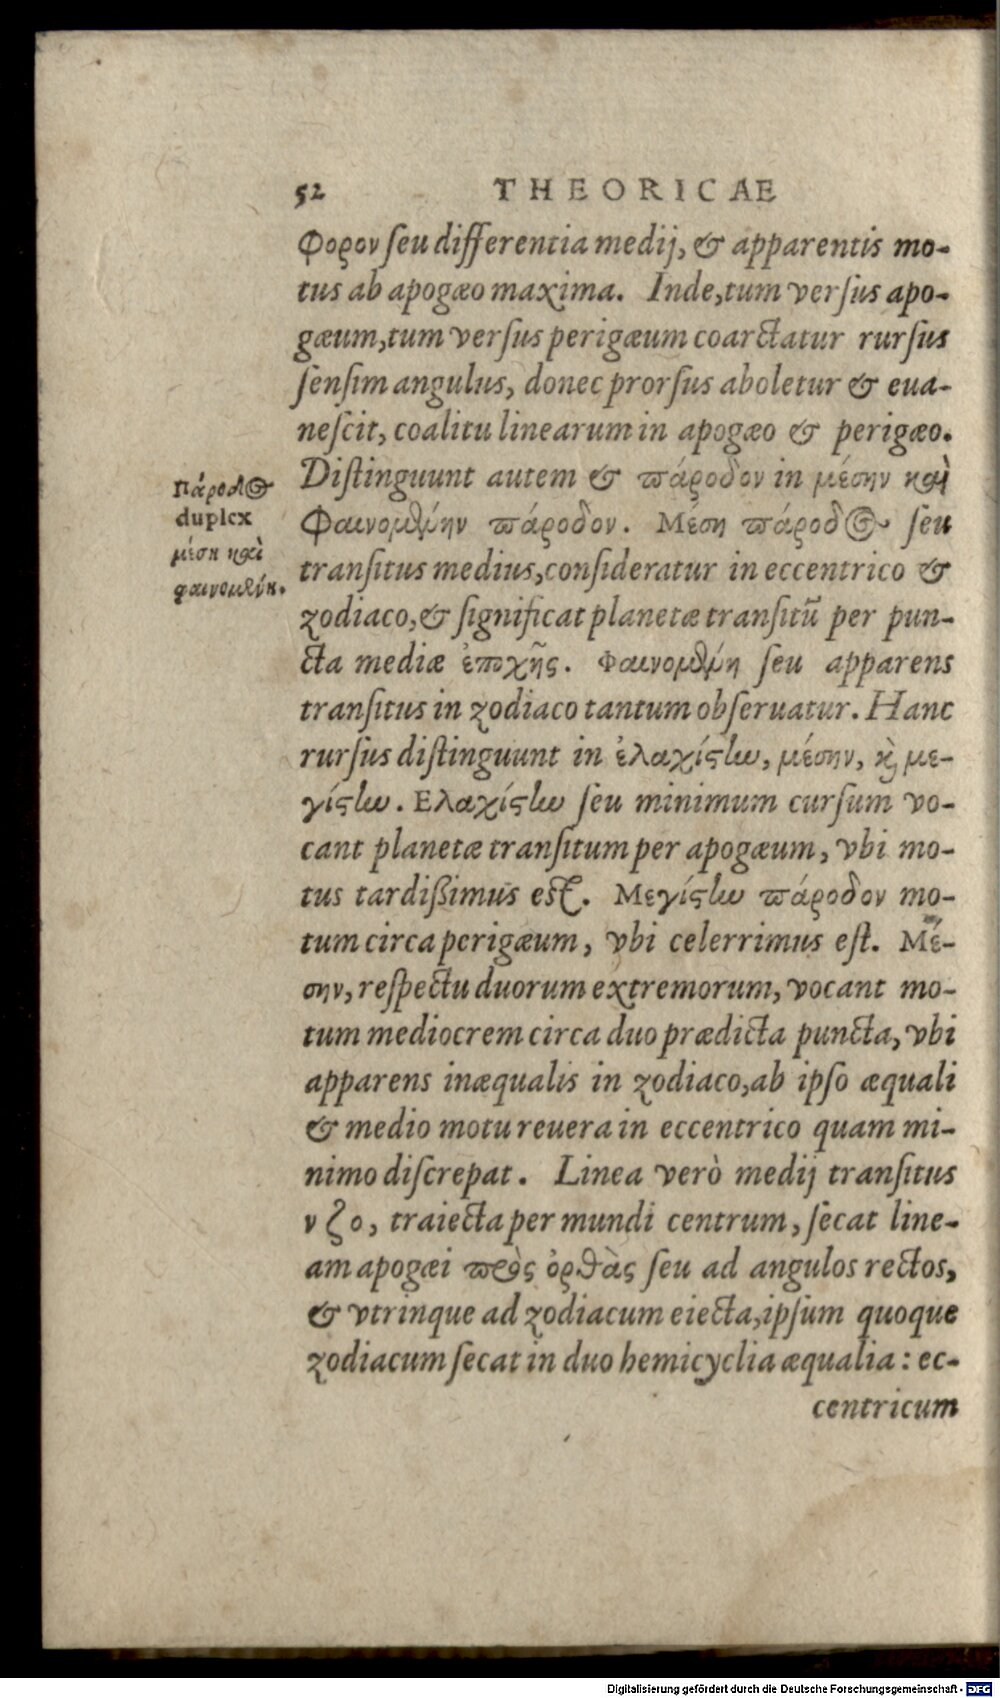 52 THEORICAE
φορον ſeu differentia medij, & apparentis mo-
tus ab apogæo maxima. Inde, tum verſus apo-
gæum, tum verſus perigæum coarctatur rurſus
ſenſim angulus, donec prorſus aboletur & eua-
neſcit, coalitu linearum in apogæo & perigæo.
Diſtinguunt autem & πάροδον in μέσην καὶ
Φαινομένην πάροδον. Μέση πάροδος ſeu
tranſitus medius, conſideratur in eccentrico &
zodiaco, & ſignificat planetæ tranſitū per pun-
cta mediæ ἐποχῆς. Φαινομένη ſeu apparens
tranſitus in zodiaco tantum obſeruatur. Hanc
rurſus diſtinguunt in ἐλαχίστην, μέσην, καὶ με-
γίστην. Ελαχίστην ſeu minimum curſum vo-
cant planetæ tranſitum per apogæum, vbi mo-
tus tardißimus eſt. Μεγίστην πάροδον mo-
tum circa perigæum, vbi celerrimus eſt. Μέ-
σην, reſpectu duorum extremorum, vocant mo-
tum mediocrem circa duo prædicta puncta, vbi
apparens inæqualis in zodiaco, ab ipſo æquali
& medio motu reuera in eccentrico quam mi-
nimo diſcrepat. Linea verò medij tranſitus
ν ζ ο, traiecta per mundi centrum, ſecat line-
am apogæi πρὸς ὀρθὰς ſeu ad angulos rectos,
& vtrinque ad zodiacum eiecta, ipſum quoque
zodiacum ſecat in duo hemicyclia æqualia: ec-
centricum
Πάροδος
duplex
μέση καὶ
φαινομένη.
Digitalisierung gefördert durch die Deutsche Forschungsgemeinschaft - DFG